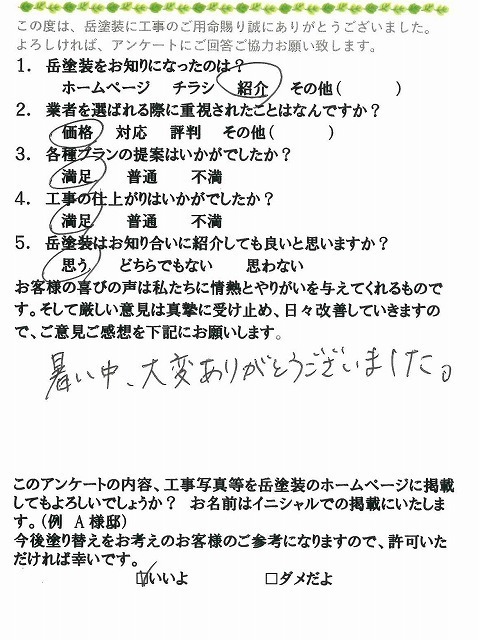 この度は、岳塗装に工事のご用命賜り誠にありがとうございました。
よろしければ、アンケートにご回答ご協力お願い致します。
1. 岳塗装をお知りになったのは？
ホームページ チラシ 紹介 その他( )
2. 業者を選ばれる際に重視されたことはなんですか？
価格 対応 評判 その他( )
3. 各種プランの提案はいかがでしたか？
満足 普通 不満
4. 工事の仕上がりはいかがでしたか？
満足 普通 不満
5. 岳塗装はお知り合いに紹介しても良いと思いますか？
思う どちらでもない 思わない
お客様の喜びの声は私たちに情熱とやりがいを与えてくれるもので
す。そして厳しい意見は真摯に受け止め、日々改善していきますの
で、ご意見ご感想を下記にお願いします。
暑い中、大変ありがとうございました。
このアンケートの内容、工事写真等を岳塗装のホームページに掲載
してもよろしいでしょうか？ お名前はイニシャルでの掲載にいたしま
す。(例 A 様邸)
今後塗り替えをお考えのお客様のご参考になりますので、許可いた
だければ幸いです。
☑いいよ □ダメだよ